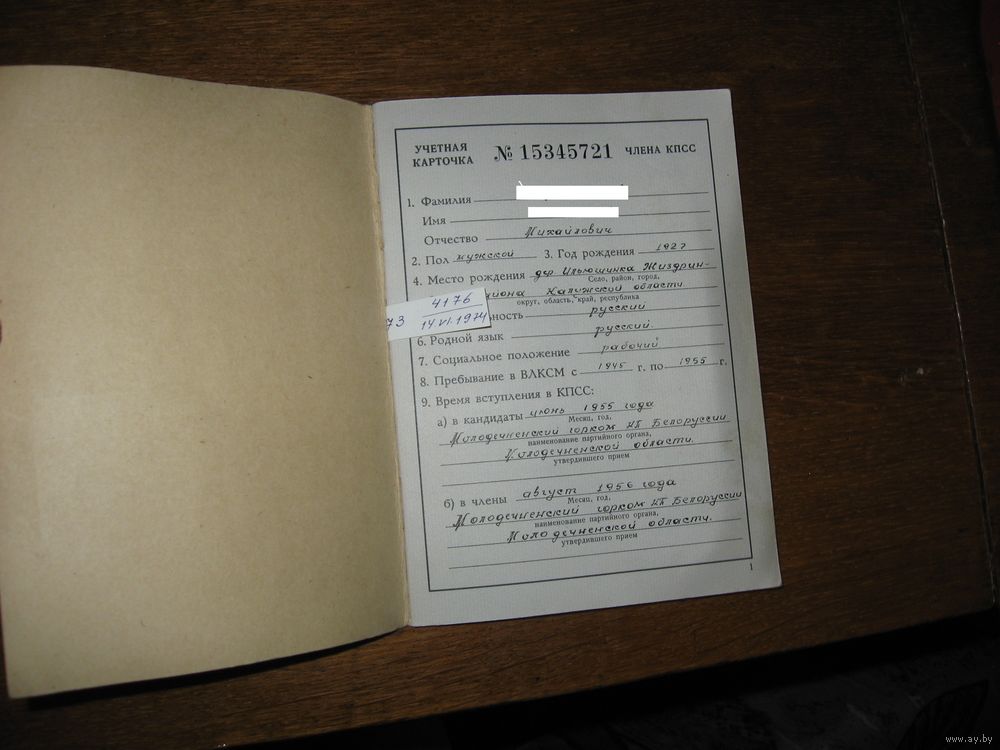 УЧЕТНАЯ КАРТОЧКА № 15345721 ЧЛЕНА КПСС
1. Фамилия
Имя
Отчество Михайлович
2. Пол мужской 3. Год рождения 1927
4. Место рождения дер. Ильюшинка Жиздрин-
Село, район, город,
района Калужской области
округ, область, край, республика
4176
73 14.VI.1974
ность русский
6. Родной язык русский.
7. Социальное положение рабочий
8. Пребывание в ВЛКСМ с 1945 г. по 1955 г.
9. Время вступления в КПСС:
а) в кандидаты июнь 1955 года
Месяц, год,
Молодечненский горком КП Белоруссии
наименование партийного органа,
Молодечненской области.
утвердившего прием
б) в члены август 1956 года
Месяц, год,
Молодечненский горком КП Белоруссии
наименование партийного органа,
Молодечненской области.
утвердившего прием
1
www.ay.by